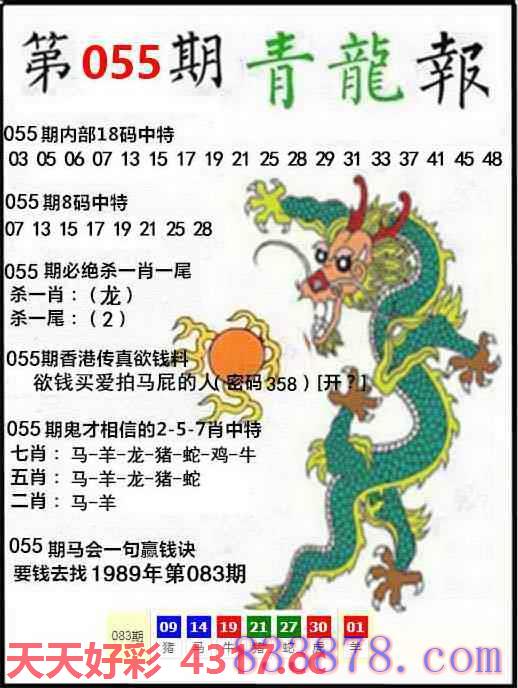 第055期 青龍報
055期内部18码中特
03 05 06 07 13 15 17 19 21 25 28 29 31 33 37 41 45 48
055期8码中特
07 13 15 17 19 21 25 28
055 期必绝杀一肖一尾
杀一肖：（龙）
杀一尾：（2）
055期香港传真欲钱料
欲钱买爱拍马屁的人(密码358)[开?]
055期鬼才相信的2-5-7肖中特
七肖：马-羊-龙-猪-蛇-鸡-牛
五肖：马-羊-龙-猪-蛇
二肖：马-羊
055 期马会一句赢钱诀
要钱去找1989年第083期
083期 09 14 19 21 27 30 01
猪 马 牛 猪 蛇 虎 羊
天天好彩 4317.cc
838878.com